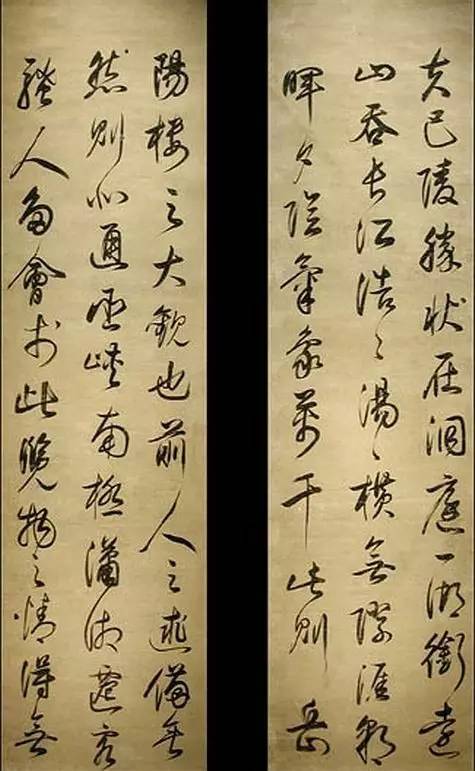 夫巴陵勝狀在洞庭一湖銜遠
山吞長江浩〻湯〻橫無際涯朝
暉夕陰氣象萬千此則岳
陽樓之大觀也前人之述備矣
然則北通巫峽南極瀟湘遷客
騷人多會於此覽物之情得無